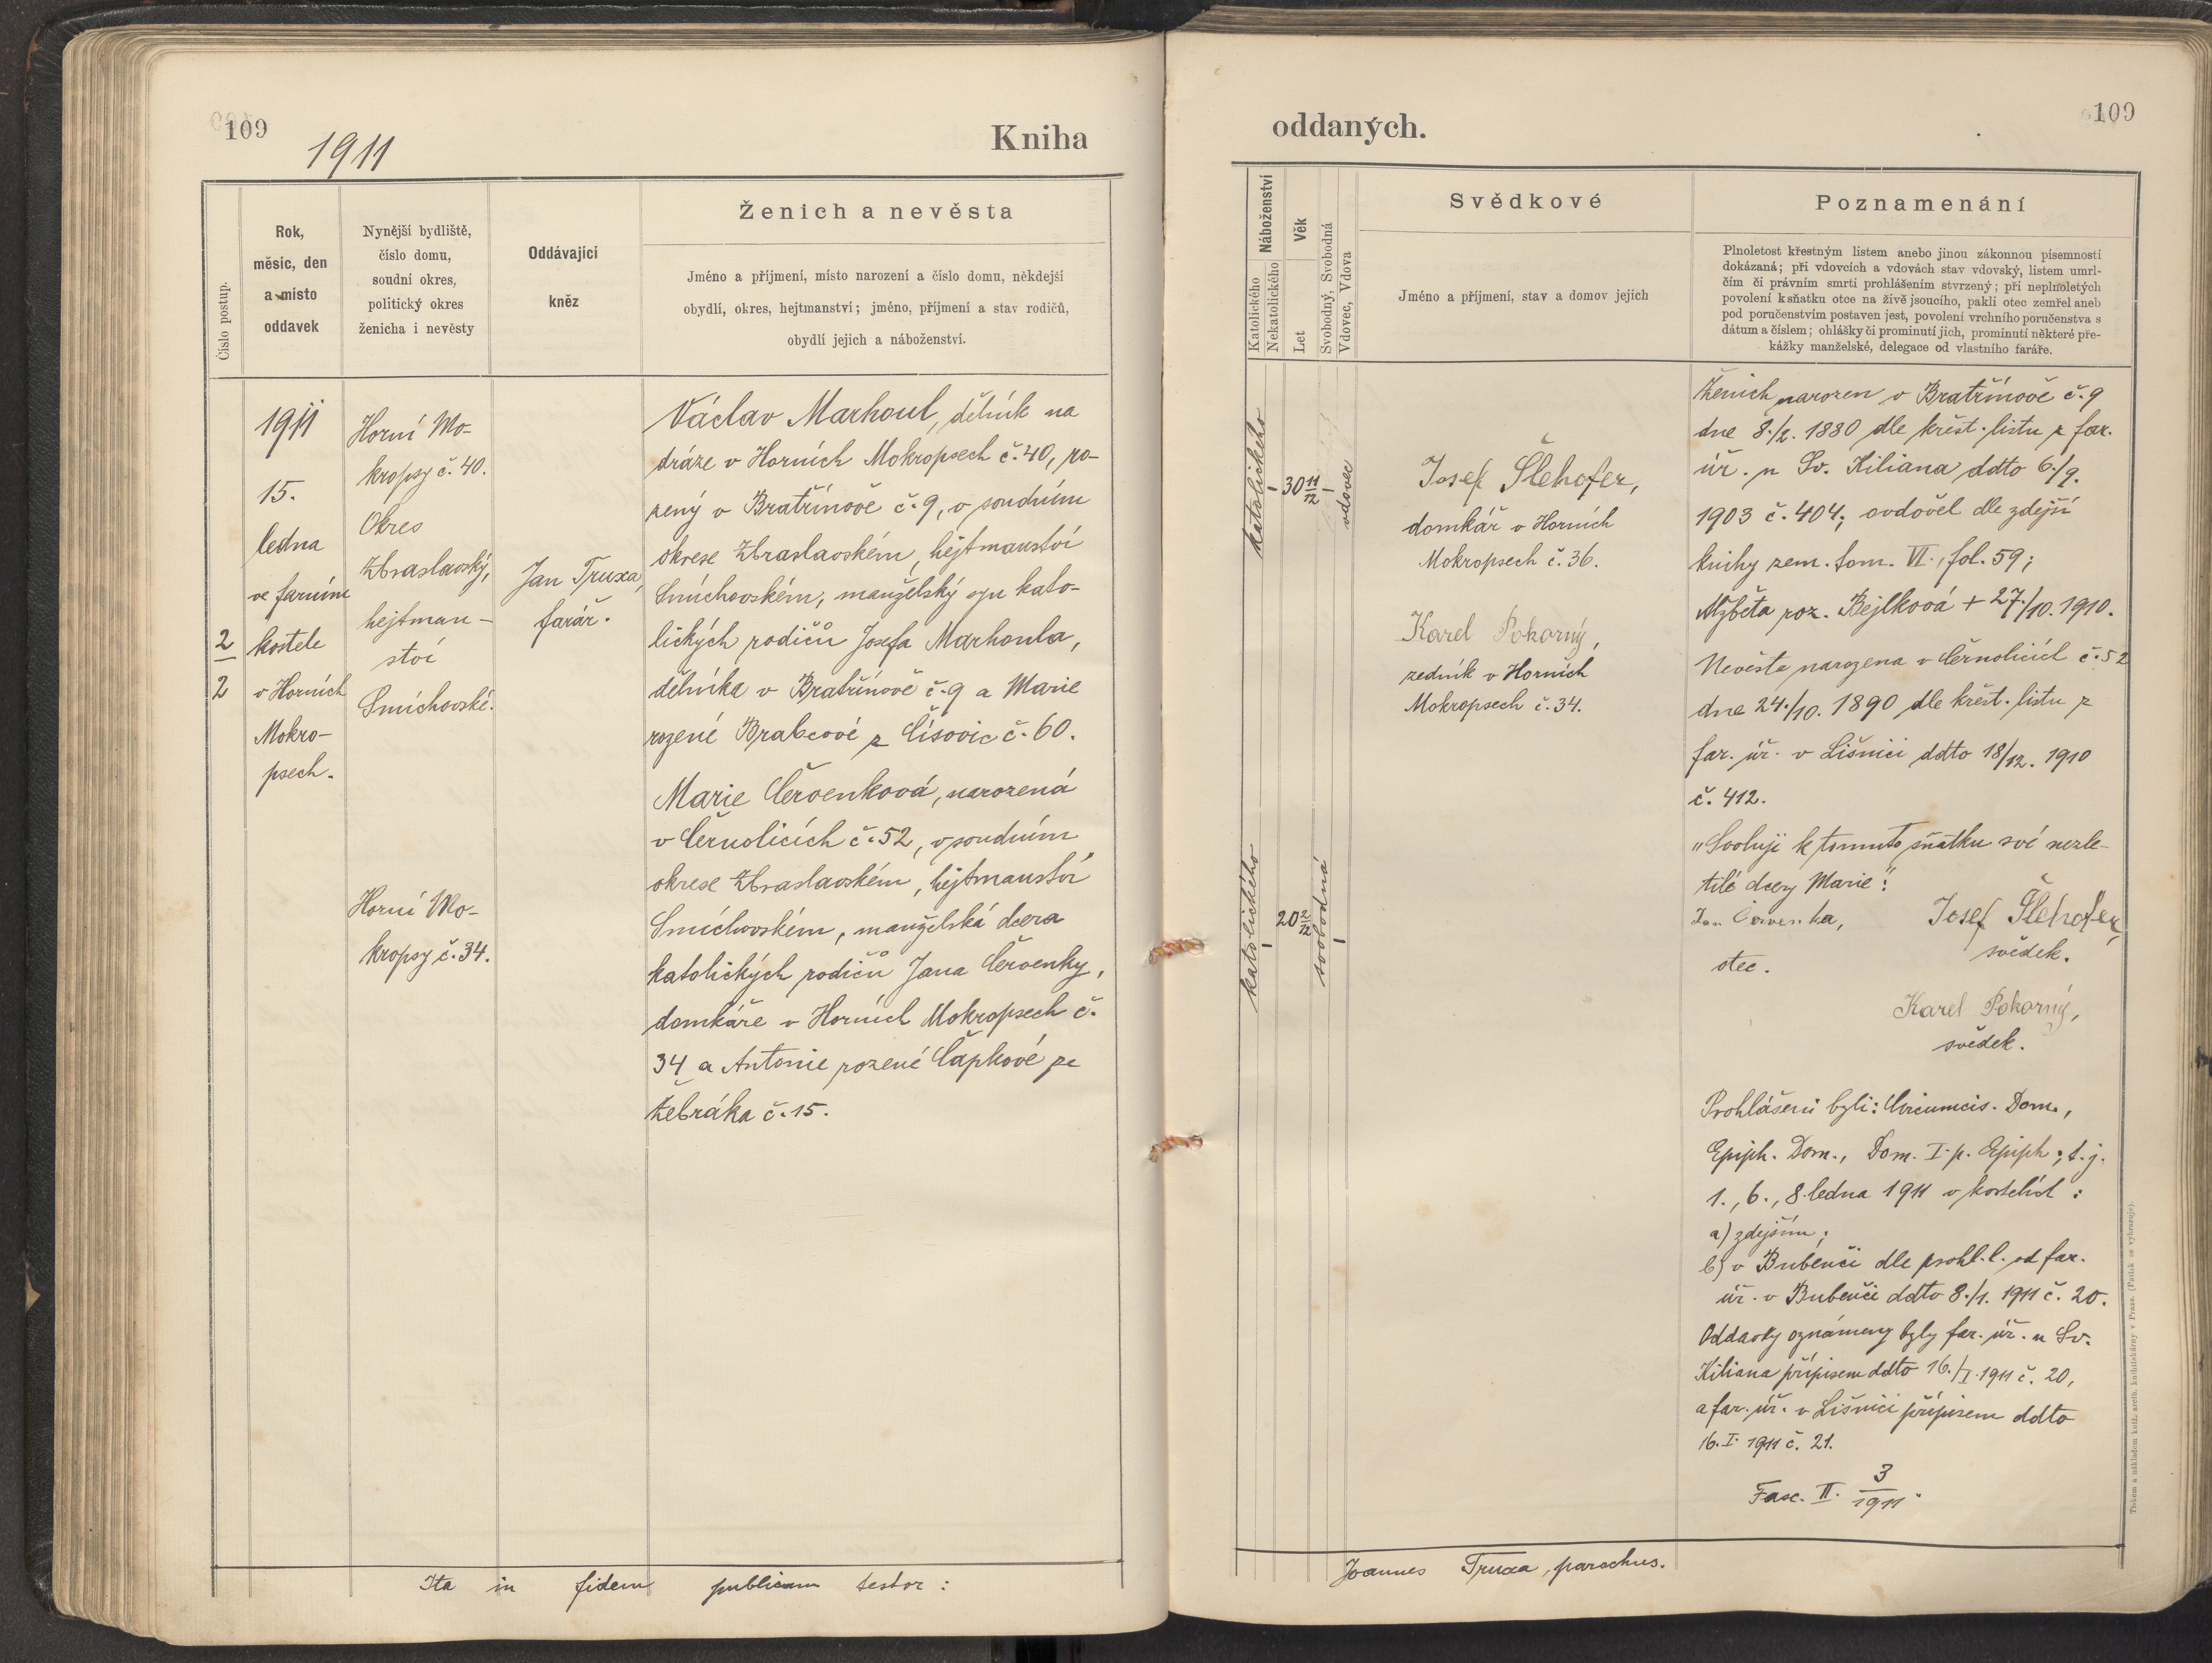 109
1911
Kniha
Číslo postup.
Rok,
měsíc, den
a místo
oddavek
Nynější bydliště,
číslo domu,
soudní okres,
politický okres
ženicha i nevěsty
Oddávající
kněz
Ženich a nevěsta
Jméno a příjmení, místo narození a číslo domu, někdejší
obydlí, okres, hejtmanství; jméno, příjmení a stav rodičů,
obydlí jejich a náboženství.
2
2
1911
15.
ledna
ve farním
kostele
v Horních
Mokro-
psech.
Horní Mo-
kropsy č. 40.
Okres
Zbraslavský,
hejtman-
ství
Smíchovské.
Horní Mo-
kropsy č. 34.
Jan Truxa,
farář.
Václav Marhoul, dělník na
dráze v Horních Mokropsech č. 40, ro-
zený v Bratřínově č. 9, v soudním
okrese Zbraslavském, hejtmanství
Smíchovském, manželský syn kato-
lických rodičů Josefa Marhoula,
dělníka v Bratřínově č. 9 a Marie
rozené Brabcové z Čísovic č. 60.
Marie Červenková, narozená
v Černolicích č. 52, v soudním
okrese Zbraslavském, hejtmanství
Smíchovském, manželská dcera
katolických rodičů Jana Červenky,
domkáře v Horních Mokropsech č.
34 a Antonie rozené Čapkové ze
Žebráka č. 15.
Ita in fidem publicam testor:
oddaných.
109
Náboženství
Katolického
Nekatolického
Věk
Let
Svobodný, Svobodná
Vdovec, Vdova
Svědkové
Jméno a příjmení, stav a domov jejich
Poznamenání
Plnoletost křestným listem anebo jinou zákonnou písemností
dokázaná; při vdovcích a vdovách stav vdovský, listem umrl-
čím či právním smrti prohlášením stvrzený; při neplnoletých
povolení k sňatku otce na živě jsoucího, pakli otec zemřel aneb
pod poručenstvím postaven jest, povolení vrchního poručenstva s
dátum a číslem; ohlášky či prominutí jich, prominutí některé pře-
kážky manželské, delegace od vlastního faráře.
katolického
30 11/12
vdovec
katolického
20 2/12
svobodná
Josef Šlehofer,
domkář v Horních
Mokropsech č. 36.
Karel Pokorný,
zedník v Horních
Mokropsech č. 34.
Ženich narozen v Bratřínově č. 9
dne 8./2. 1880 dle křest. listu z far.
úř. u Sv. Kiliana ddto 6./9.
1903 č. 404; ovdověl dle zdejší
knihy zem. tom. VI., fol. 59;
Alžběta roz. Bejlková + 27./10. 1910.
Nevěsta narozena v Černolicích č. 52
dne 24./10. 1890 dle křest. listu z
far. úř. v Lišnici ddto 18/12. 1910
č. 412.
"Svoluji k tomuto sňatku své nezle-
tilé dcery Marie":
Jan Červenka,
otec.
Josef Šlehofer,
svědek.
Karel Pokorný,
svědek.
Prohlášeni byli: Circumcis. Dom.,
Epiph. Dom., Dom. I. p. Epiph; t. j.
1., 6., 8. ledna 1911 v kostelích:
a) zdejším;
b) v Bubenči dle prohl. l. od far.
úř. v Bubenči ddto 8./1. 1911 č. 20.
Oddavky oznámeny byly far. úř. u Sv.
Kiliana přípisem ddto 16./I. 1911 č. 20,
a far. úř. v Lišnici přípisem ddto
16. I. 1911 č. 21.
Fasc. II. 3/1911.
Joannes Truxa, parochus.